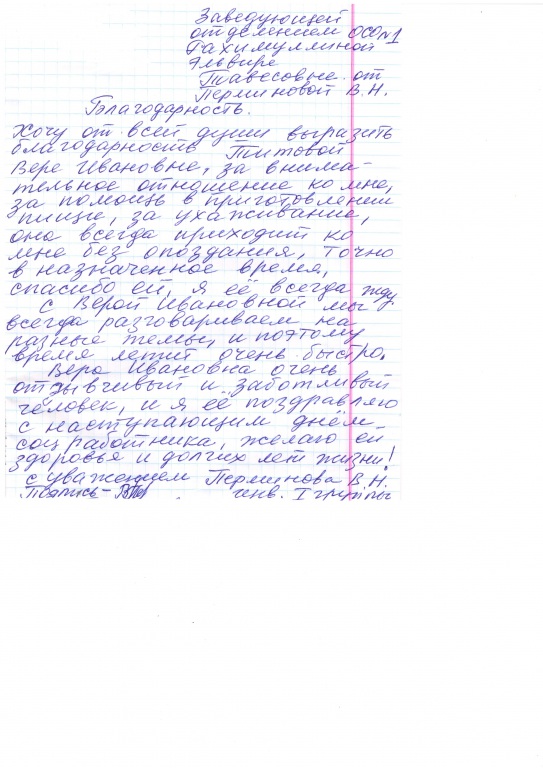 Заведующей
отделением ОСО №1
Рахимуллиной
Эльвире
Тавесовне от
Перминовой В.Н.
Благодарность.
Хочу от всей души выразить
благодарность Титовой
Вере Ивановне, за внима-
тельное отношение ко мне,
за помощь в приготовлении
пищи, за ухаживание,
она всегда приходит ко
мне без опоздания, точно
в назначенное время,
спасибо ей, я её всегда жду.
С Верой Ивановной мы
всегда разговариваем на
разные темы, и поэтому
время летит очень быстро.
Вера Ивановна очень
отзывчивый и заботливый
человек, и я её поздравляю
с наступающим днём
соц работника, желаю ей
здоровья и долгих лет жизни!
с уважением Перминова В.Н.
инв. I группы